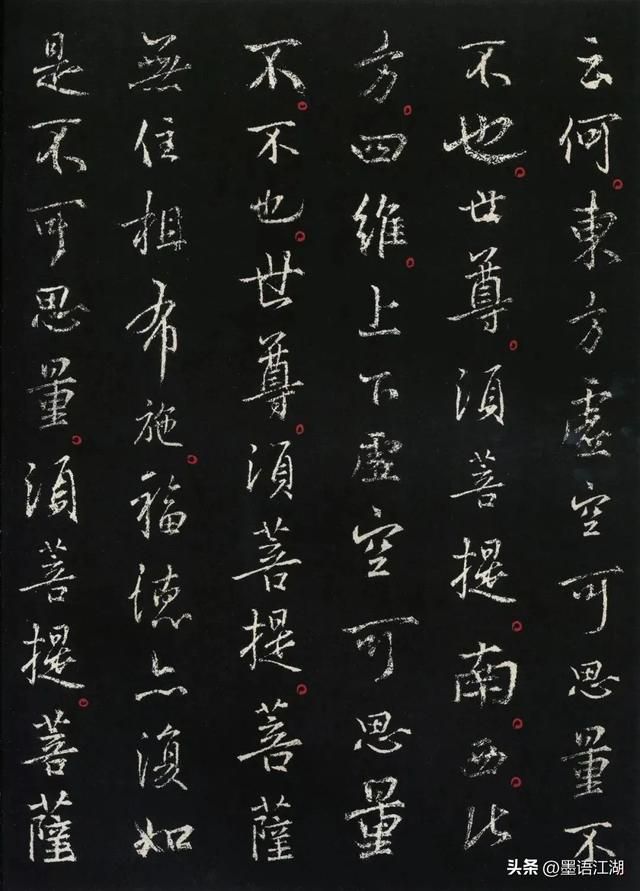 云何東方虛空可思量不
不也世尊須菩提南西北
方四維上下虛空可思量
不不也世尊須菩提菩薩
無住相布施福德亦復如
是不可思量須菩提菩薩
头条 @墨语江湖